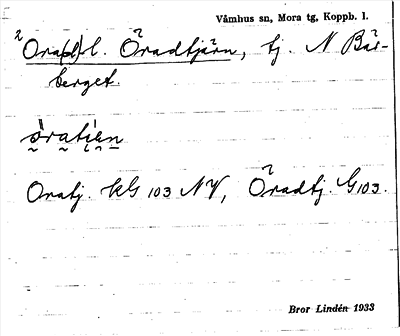 Våmhus sn, Mora tg, Koppb. l.
2 Ora(d) l. Öradtjärn, tj. N Bäs-
berget.
òratiẹn
Oratj. kG 103 NV, Öradtj. G103.
Bror Lindén 1933